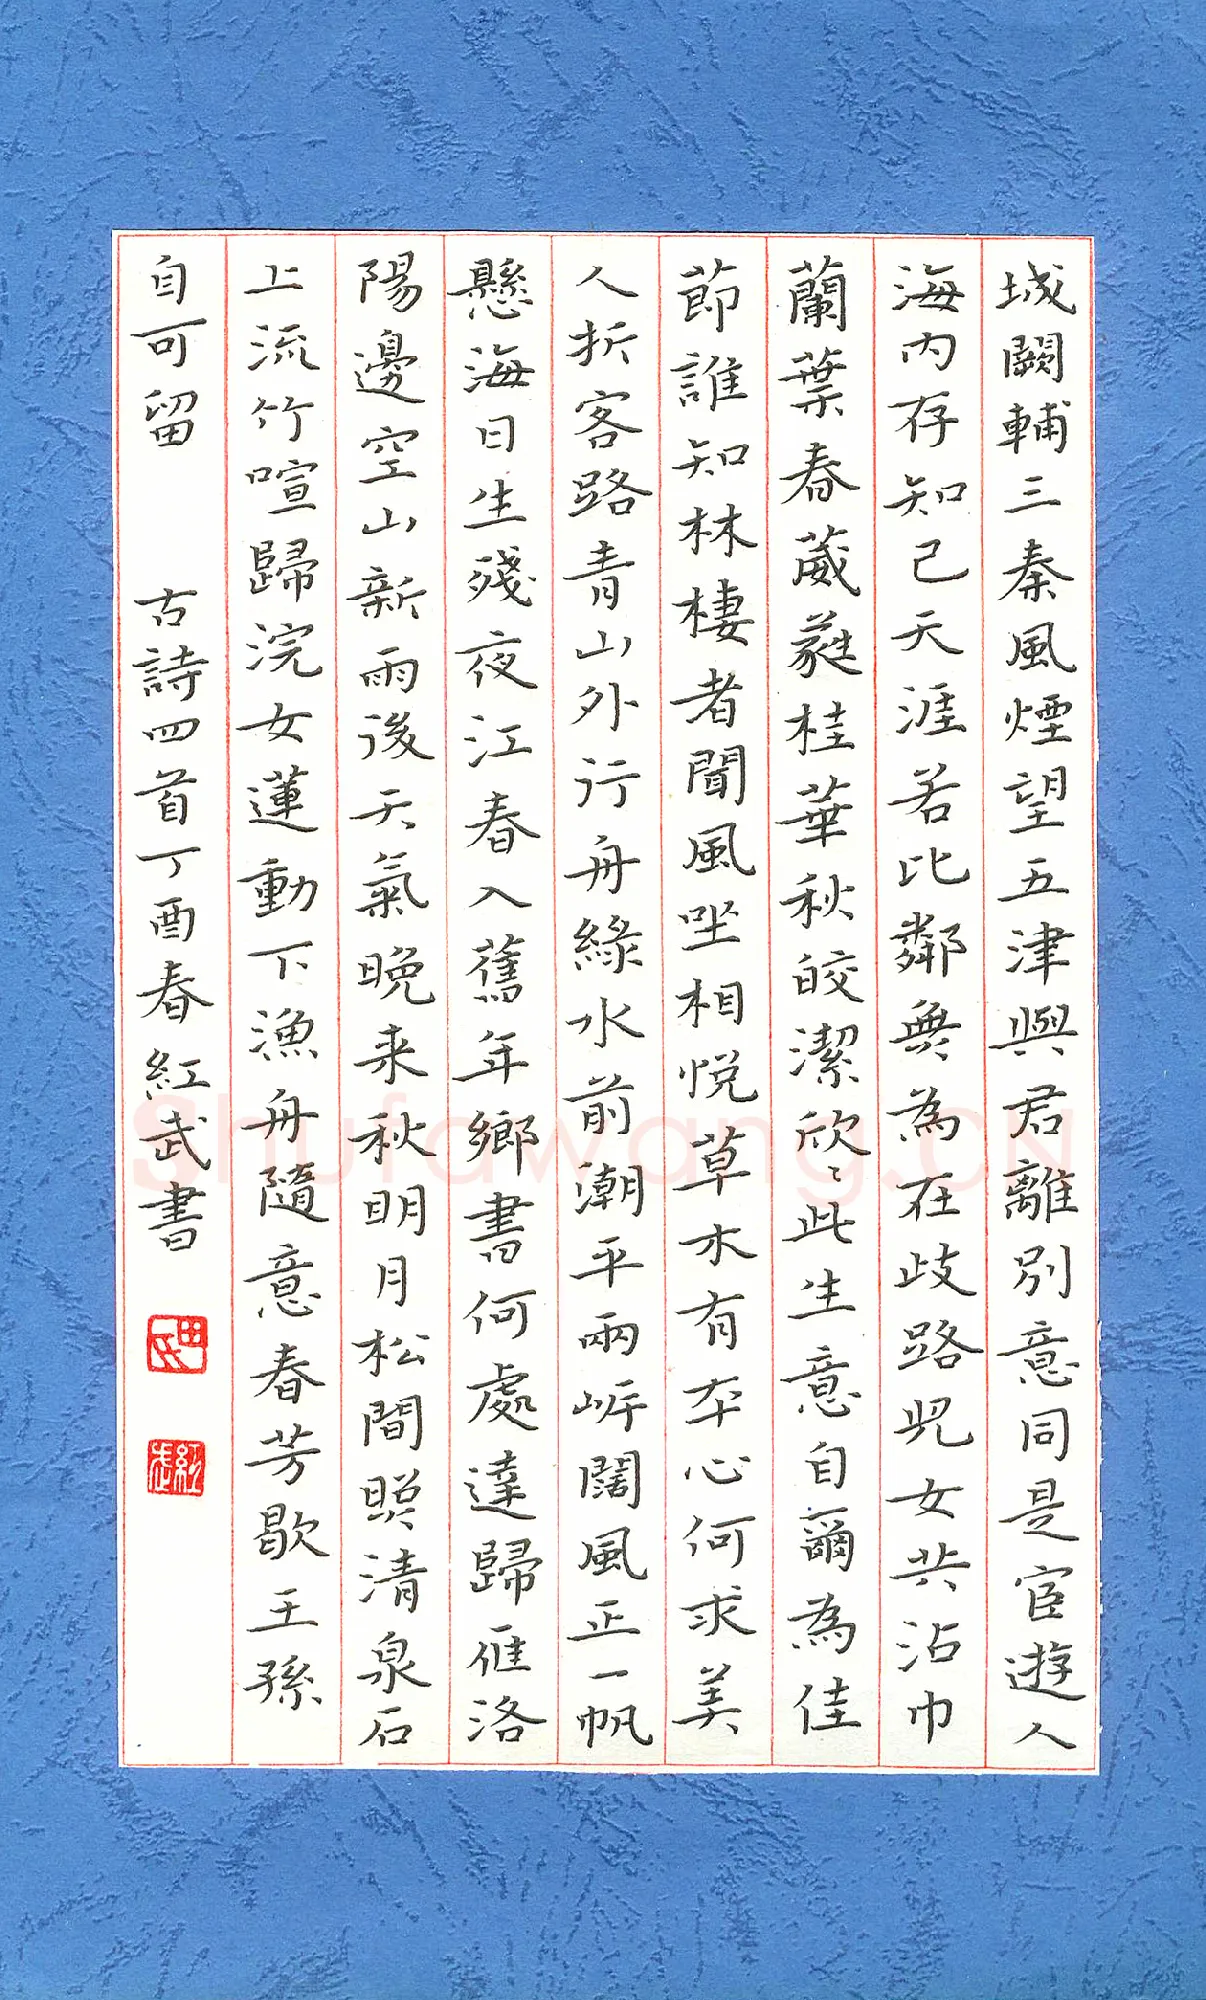 城闕輔三秦風煙望五津與君離別意同是宦遊人
海内存知己天涯若比鄰無為在歧路児女共沾巾
蘭葉春葳蕤桂華秋皎潔欣〻此生意自爾為佳
節誰知林棲者聞風坐相悅草木有本心何求美
人折客路青山外行舟綠水前潮平兩岸闊風正一帆
懸海日生殘夜江春入舊年鄉書何處達歸雁洛
陽邊空山新雨後天氣晚来秋明月松間照清泉石
上流竹喧歸浣女蓮動下漁舟隨意春芳歇王孫
自可留 古詩四首丁酉春紅武書
田氏
紅武
Shufawang.CN